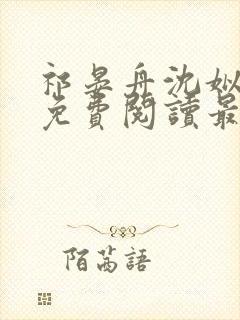 祁晏舟沈姒
免費閱讀最
陌茗語